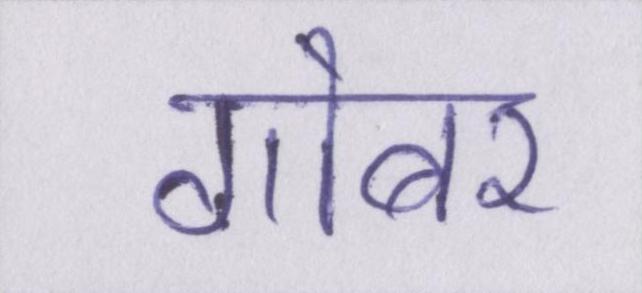 गोबर